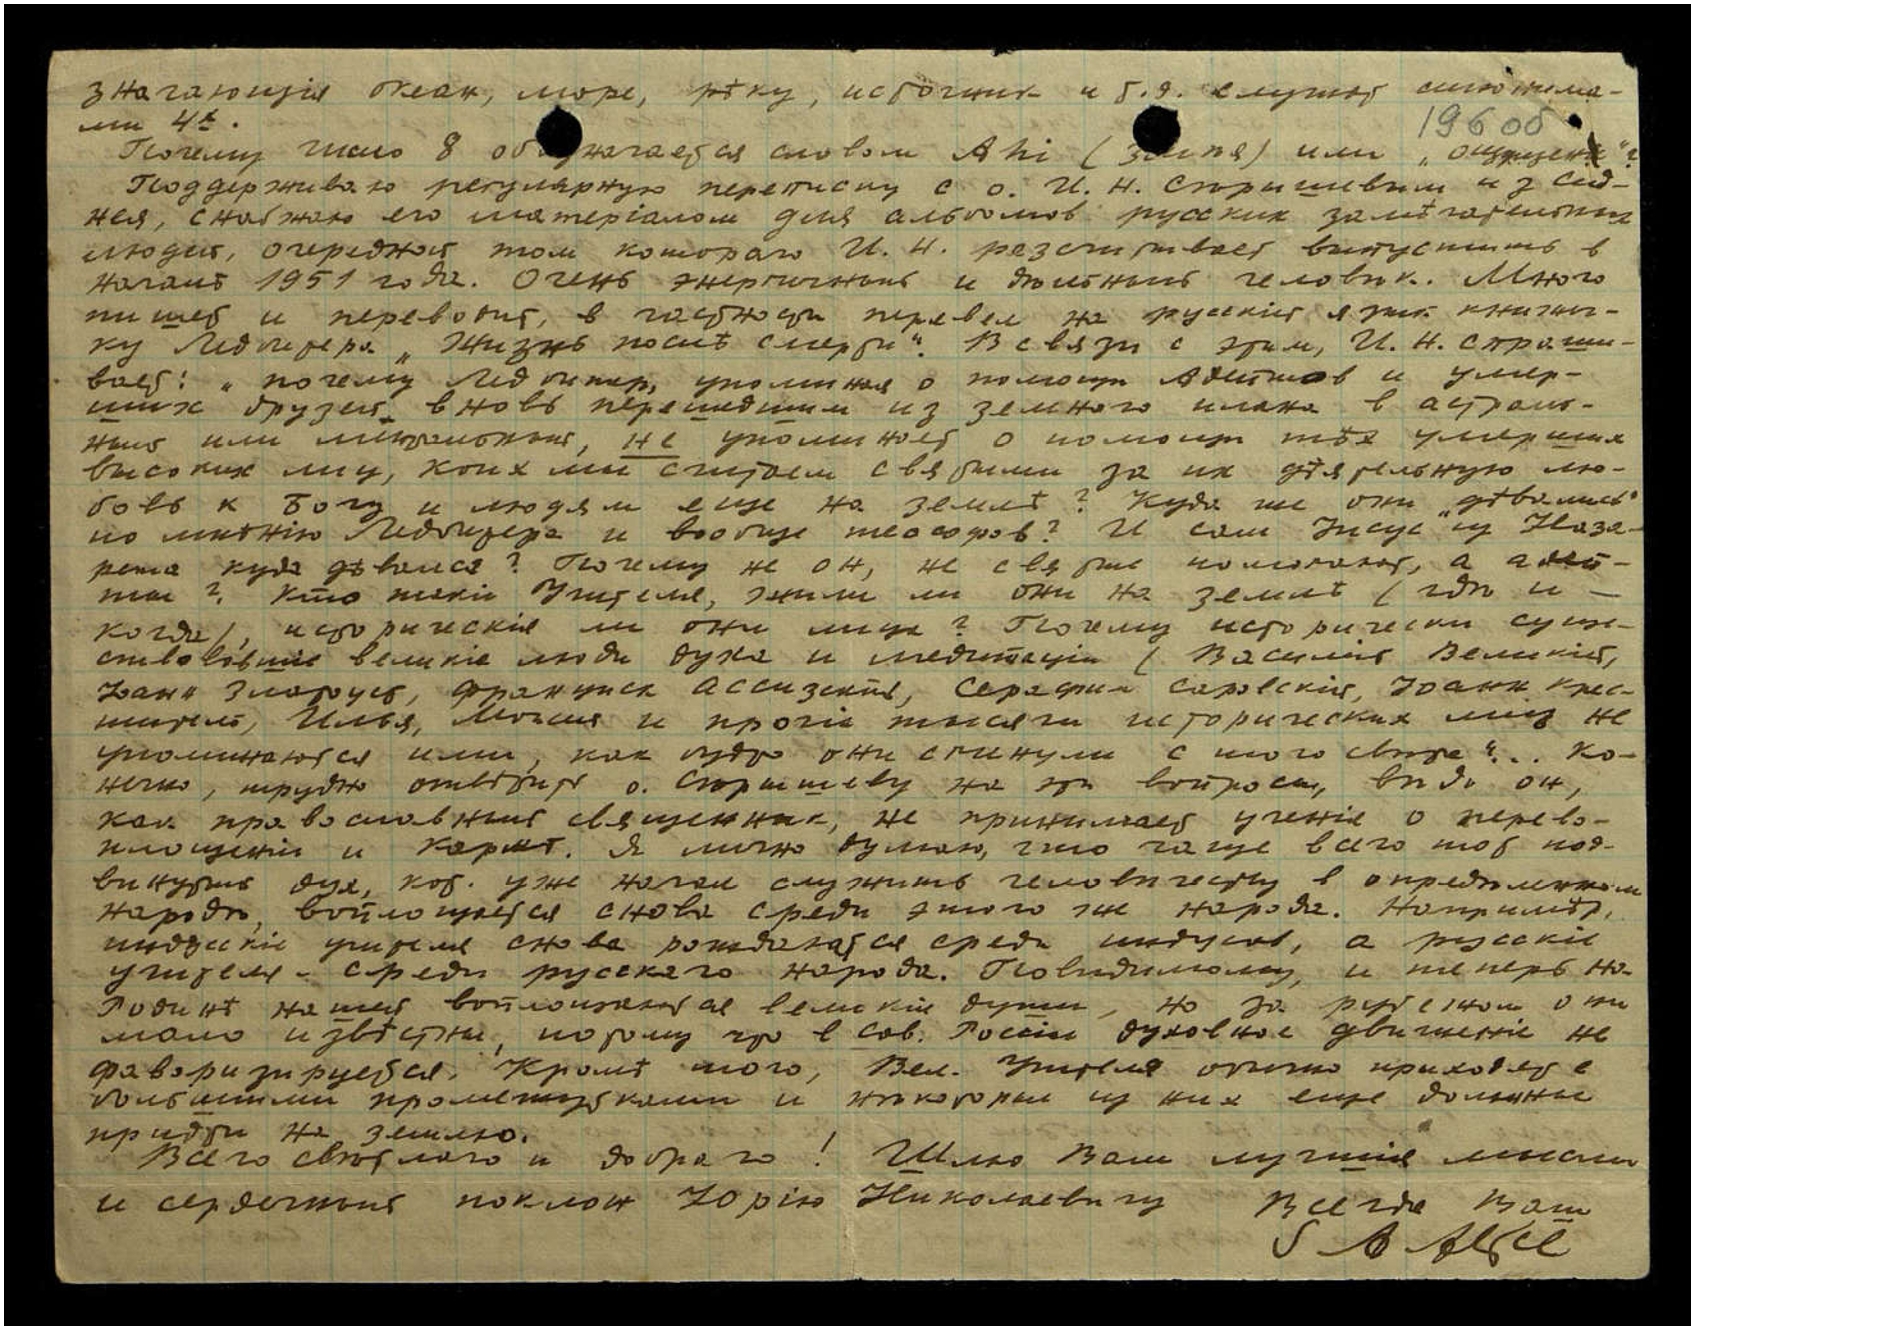 значающія океан, море, рѣку, источник и т.д. служат синонима-
ми 4х.
196 об
Почему число 8 обозначается словом Ahi (Змѣя) или „
Поддерживаю регулярную переписку с о. И. Н. Сторишевым из Сид-
нея, снабжаю его матеріалом для альбомов русских замѣчательных
людей, очередной том котораго И. Н. разсчитывает выпустить в
началѣ 1951 года. Очень энергичный и дѣльный человѣк. Много
пишет и переводит, в частности перевел на русскій язык книжеч-
ку Ледбитера „Жизнь послѣ смерти“. В связи с этим, И. Н. спраши-
вает: „почему Ледбитер, упоминая о помощи Адептов и умер-
ших друзей вновь перешедшим из земного плана в астраль-
ный или ментальный, не упоминает о помощи тѣх умерших
высоких лиц, коих мы считаем святыми за их дѣятельную лю-
бовь к Богу и людям еще на землѣ? Куда же они „дѣвались“
по мнѣнію Ледбитера и вообще теософов? И сам Іисус из Наза-
рета куда дѣвался? Почему не он, не святые помогают, а адеп-
ты? Кто такіе Учителя, жили ли они на землѣ (гдѣ и —
когда), историческія ли они лица? Почему исторически суще-
ствовавшіе великіе люди духа и медитаціи (Василій Великій,
Іоанн Златоуст, Франциск Ассизскій, Серафим Саровскій, Іоанн Крес-
титель, Илья, Моисей и прочіе тысячи исторических лиц не
упоминаются ими, как будто они сгинули с того свѣта“... Ко-
нечно, трудно отвѣтить о. Сторишеву на эти вопросы, вѣдь он,
как православный священник, не принимает ученіе о перево-
площеніи и Кармѣ. Я лично думаю, что чаще всего тот под-
винутый дух, кот. уже начал служить человѣчеству в опредѣленном
народѣ, воплощается снова среди этого же народа. Напримѣр,
индусскіе учителя снова рождаются среди индусов, а русскіе
учителя – среди русскаго народа. Повидимому, и теперь на
Родинѣ нашей воплощаются великіе души, но за рубежом они
мало извѣстны, потому что в Сов. Россіи духовное движеніе не
фаворизируется. Кромѣ того, Вел. Учителя обычно приходят с
большими промежутками и нѣкоторые из них еще должны
придти на землю.
Всего свѣтлаго и добраго! Шлю Вам лучшія мысли
и сердечный поклон Юрію Николаевичу Всегда Ваш